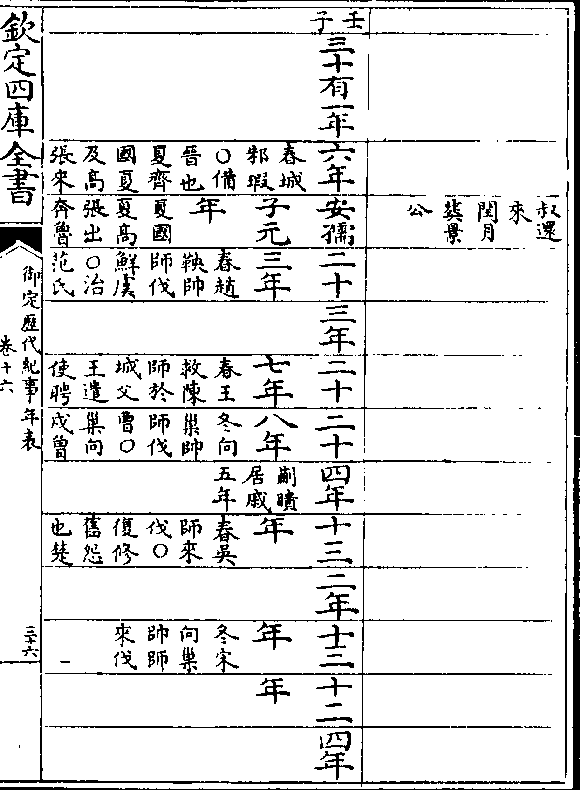 叔還
來
閏月
葬景
公
壬
子
三十有一年
六年
春城
邾瑕
〇備
晉也
夏齊
國夏
及高
張來
安孺
子元
年
夏國
夏高
張出
奔魯
二十
三年
春趙
鞅帥
師伐
鮮虞
〇治
范氏
三年
二十
七年
春王
救陳
師於
城父
王遣
使聘
二十
八年
冬向
巢帥
師伐
曹〇
巢向
戍曾
四年
蒯聵
居戚
五年
十三
年
春吳
師來
伐〇
復修
舊怨
也楚
二年
十三
年
冬宋
向巢
帥師
來伐
十二
年
四年
欽定四庫全書
御定歷代紀事年表
卷十六
三十六